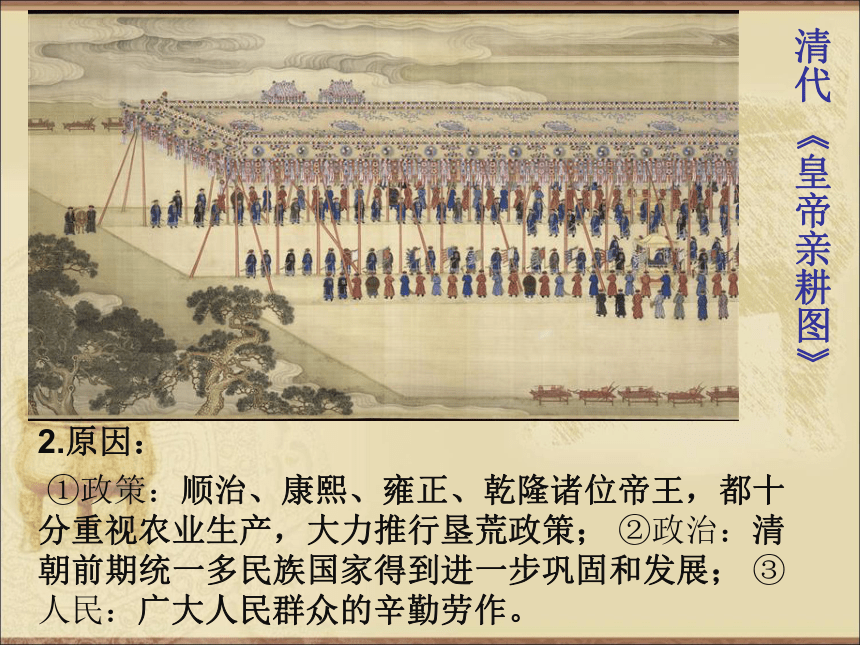 清代《皇帝亲耕图》
2.原因：
①政策：顺治、康熙、雍正、乾隆诸位帝王，都十
分重视农业生产，大力推行垦荒政策； ②政治：清
朝前期统一多民族国家得到进一步巩固和发展； ③
人民：广大人民群众的辛勤劳作。